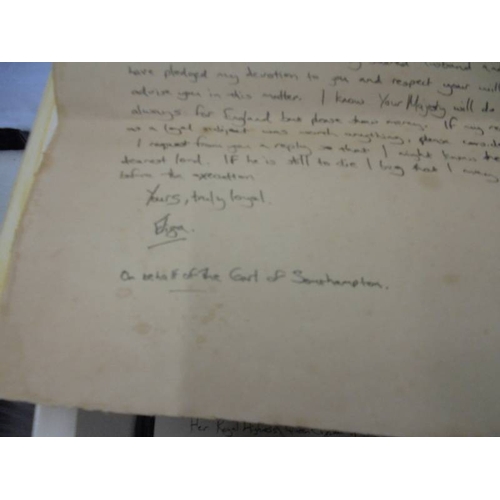 husband and
have pledged my devotion to you and respect your will
advise you in this matter. I know Your Majesty will do
always for England but please show mercy. If my
as a loyal subject was worth anything, please consider
I request from you a reply so that I might know the
dearest lord. If he is still to die I beg that I may
before the execution
Yours, truly loyal.
On behalf of the Earl of Southampton.
Her Royal Highness